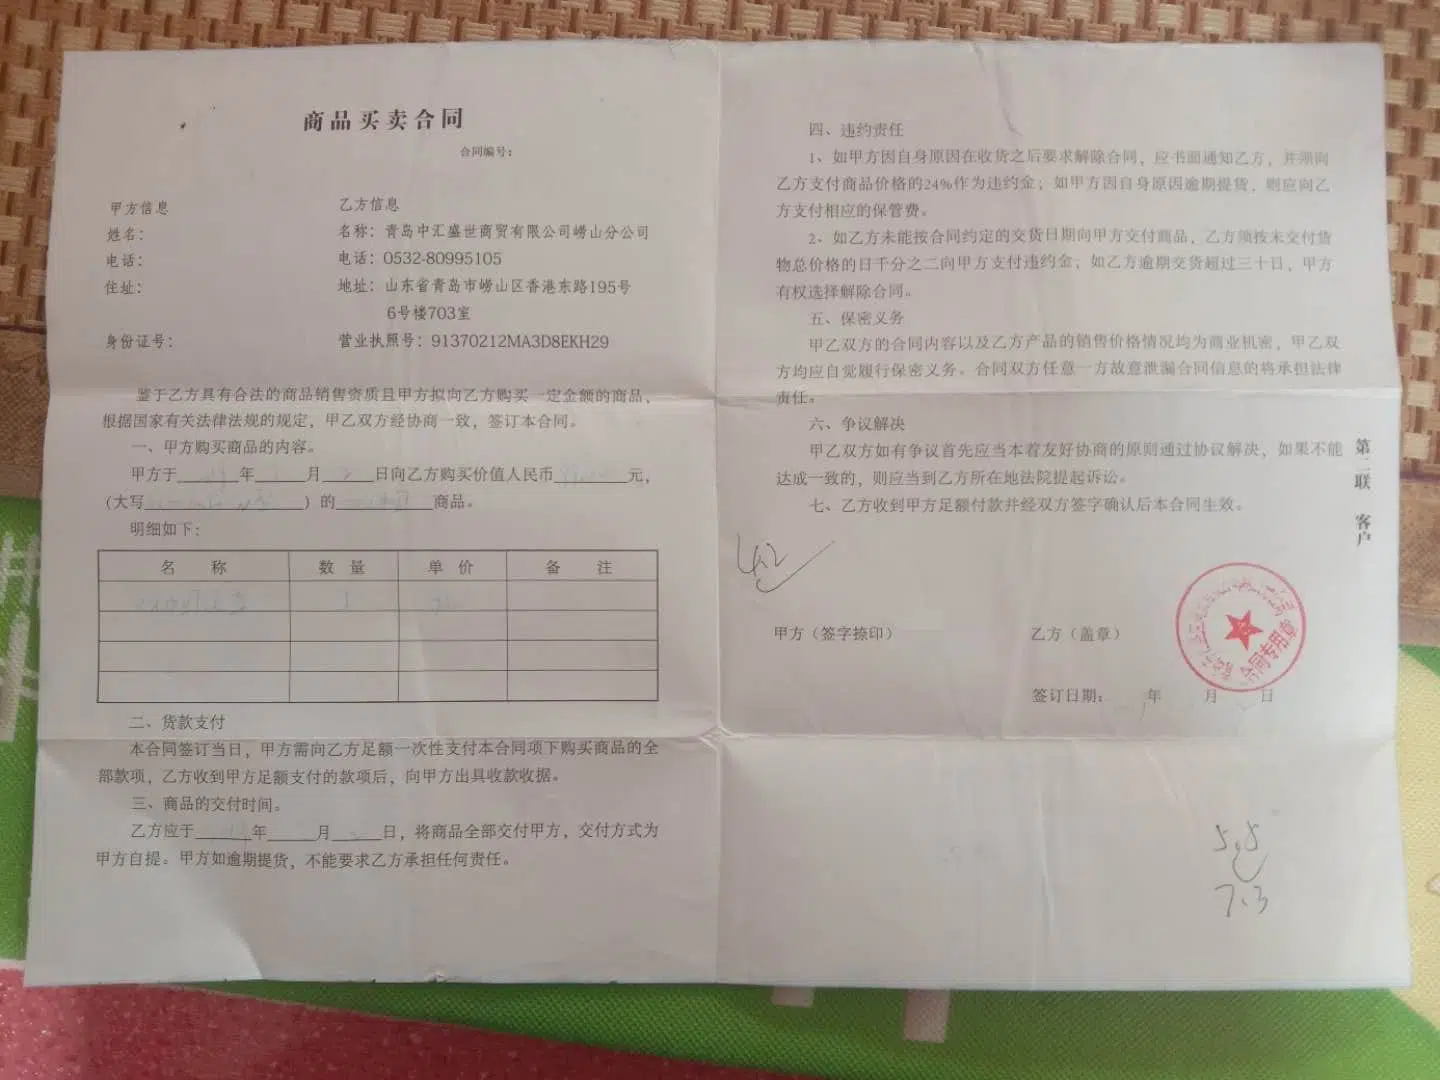 商品买卖合同
合同编号：
甲方信息
姓名：
电话：
住址：
身份证号：
乙方信息
名称：青岛中汇盛世商贸有限公司崂山分公司
电话：0532-80995105
地址：山东省青岛市崂山区香港东路195号
6号楼703室
营业执照号：91370212MA3D8EKH29
鉴于乙方具有合法的商品销售资质且甲方拟向乙方购买一定金额的商品，
根据国家有关法律法规的规定，甲乙双方经协商一致，签订本合同。
一、甲方购买商品的内容。
甲方于 年 月 日向乙方购买价值人民币 元，
（大写 ）的 商品。
明细如下：
名 称 数 量 单 价 备 注
二、货款支付
本合同签订当日，甲方需向乙方足额一次性支付本合同项下购买商品的全
部款项，乙方收到甲方足额支付的款项后，向甲方出具收款收据。
三、商品的交付时间。
乙方应于 年 月 日，将商品全部交付甲方，交付方式为
甲方自提。甲方如逾期提货，不能要求乙方承担任何责任。
四、违约责任
1、如甲方因自身原因在收货之后要求解除合同，应书面通知乙方，并须向
乙方支付商品价格的24%作为违约金；如甲方因自身原因逾期提货，则应向乙
方支付相应的保管费。
2、如乙方未能按合同约定的交货日期向甲方交付商品，乙方须按未交付货
物总价格的日千分之二向甲方支付违约金；如乙方逾期交货超过三十日，甲方
有权选择解除合同。
五、保密义务
甲乙双方的合同内容以及乙方产品的销售价格情况均为商业机密，甲乙双
方均应自觉履行保密义务。合同双方任意一方故意泄漏合同信息的将承担法律
责任。
六、争议解决
甲乙双方如有争议首先应当本着友好协商的原则通过协议解决，如果不能
达成一致的，则应当到乙方所在地法院提起诉讼。
七、乙方收到甲方足额付款并经双方签字确认后本合同生效。
第二联 客户
甲方（签字捺印）
乙方（盖章）
合同专用章
签订日期： 年 月 日
5.8
7.3